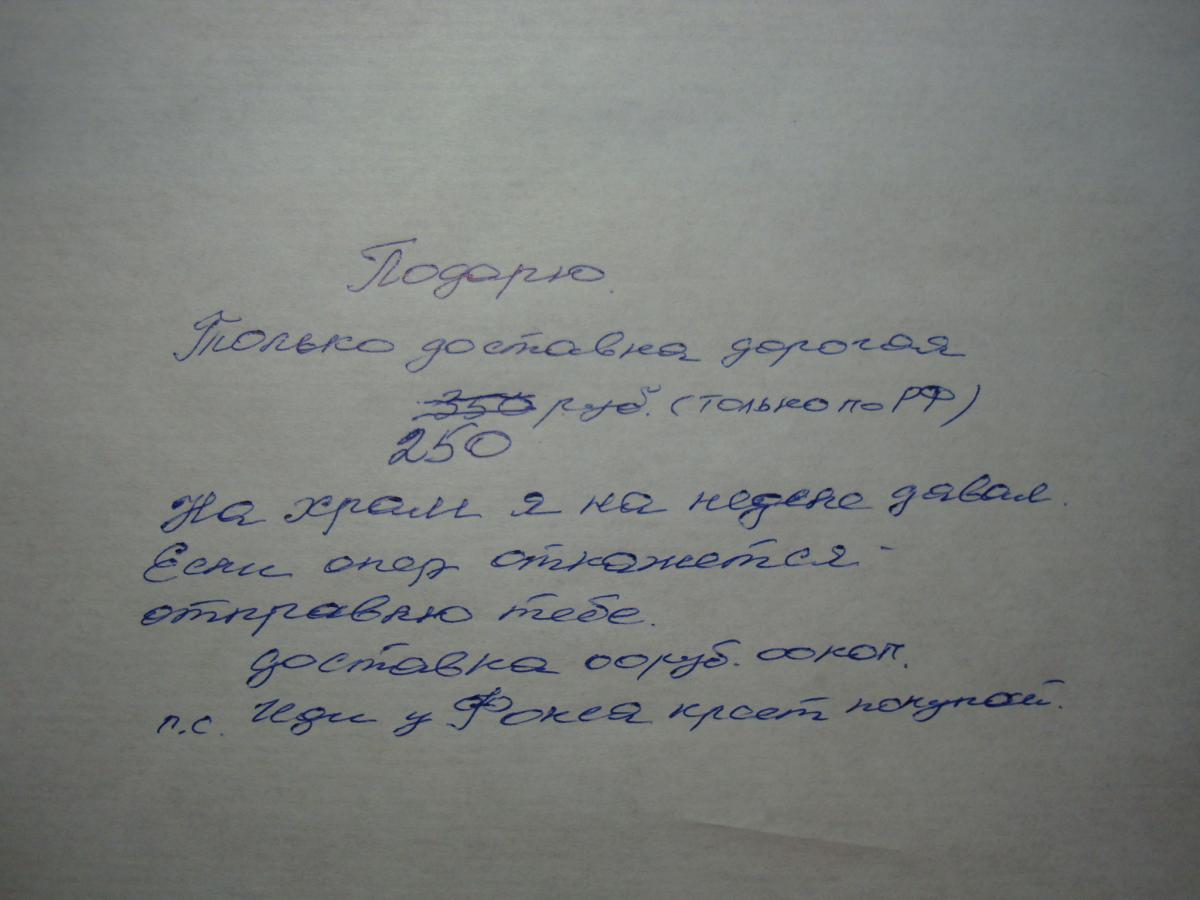 Подарю.
Только доставка дорогая
350 руб. (только по РФ)
250
На храм я на неделе давал.
Если опер откажется -
отправлю тебе.
доставка 00 руб. 00 коп.
п.с. Иди у Фокса крест покупай.